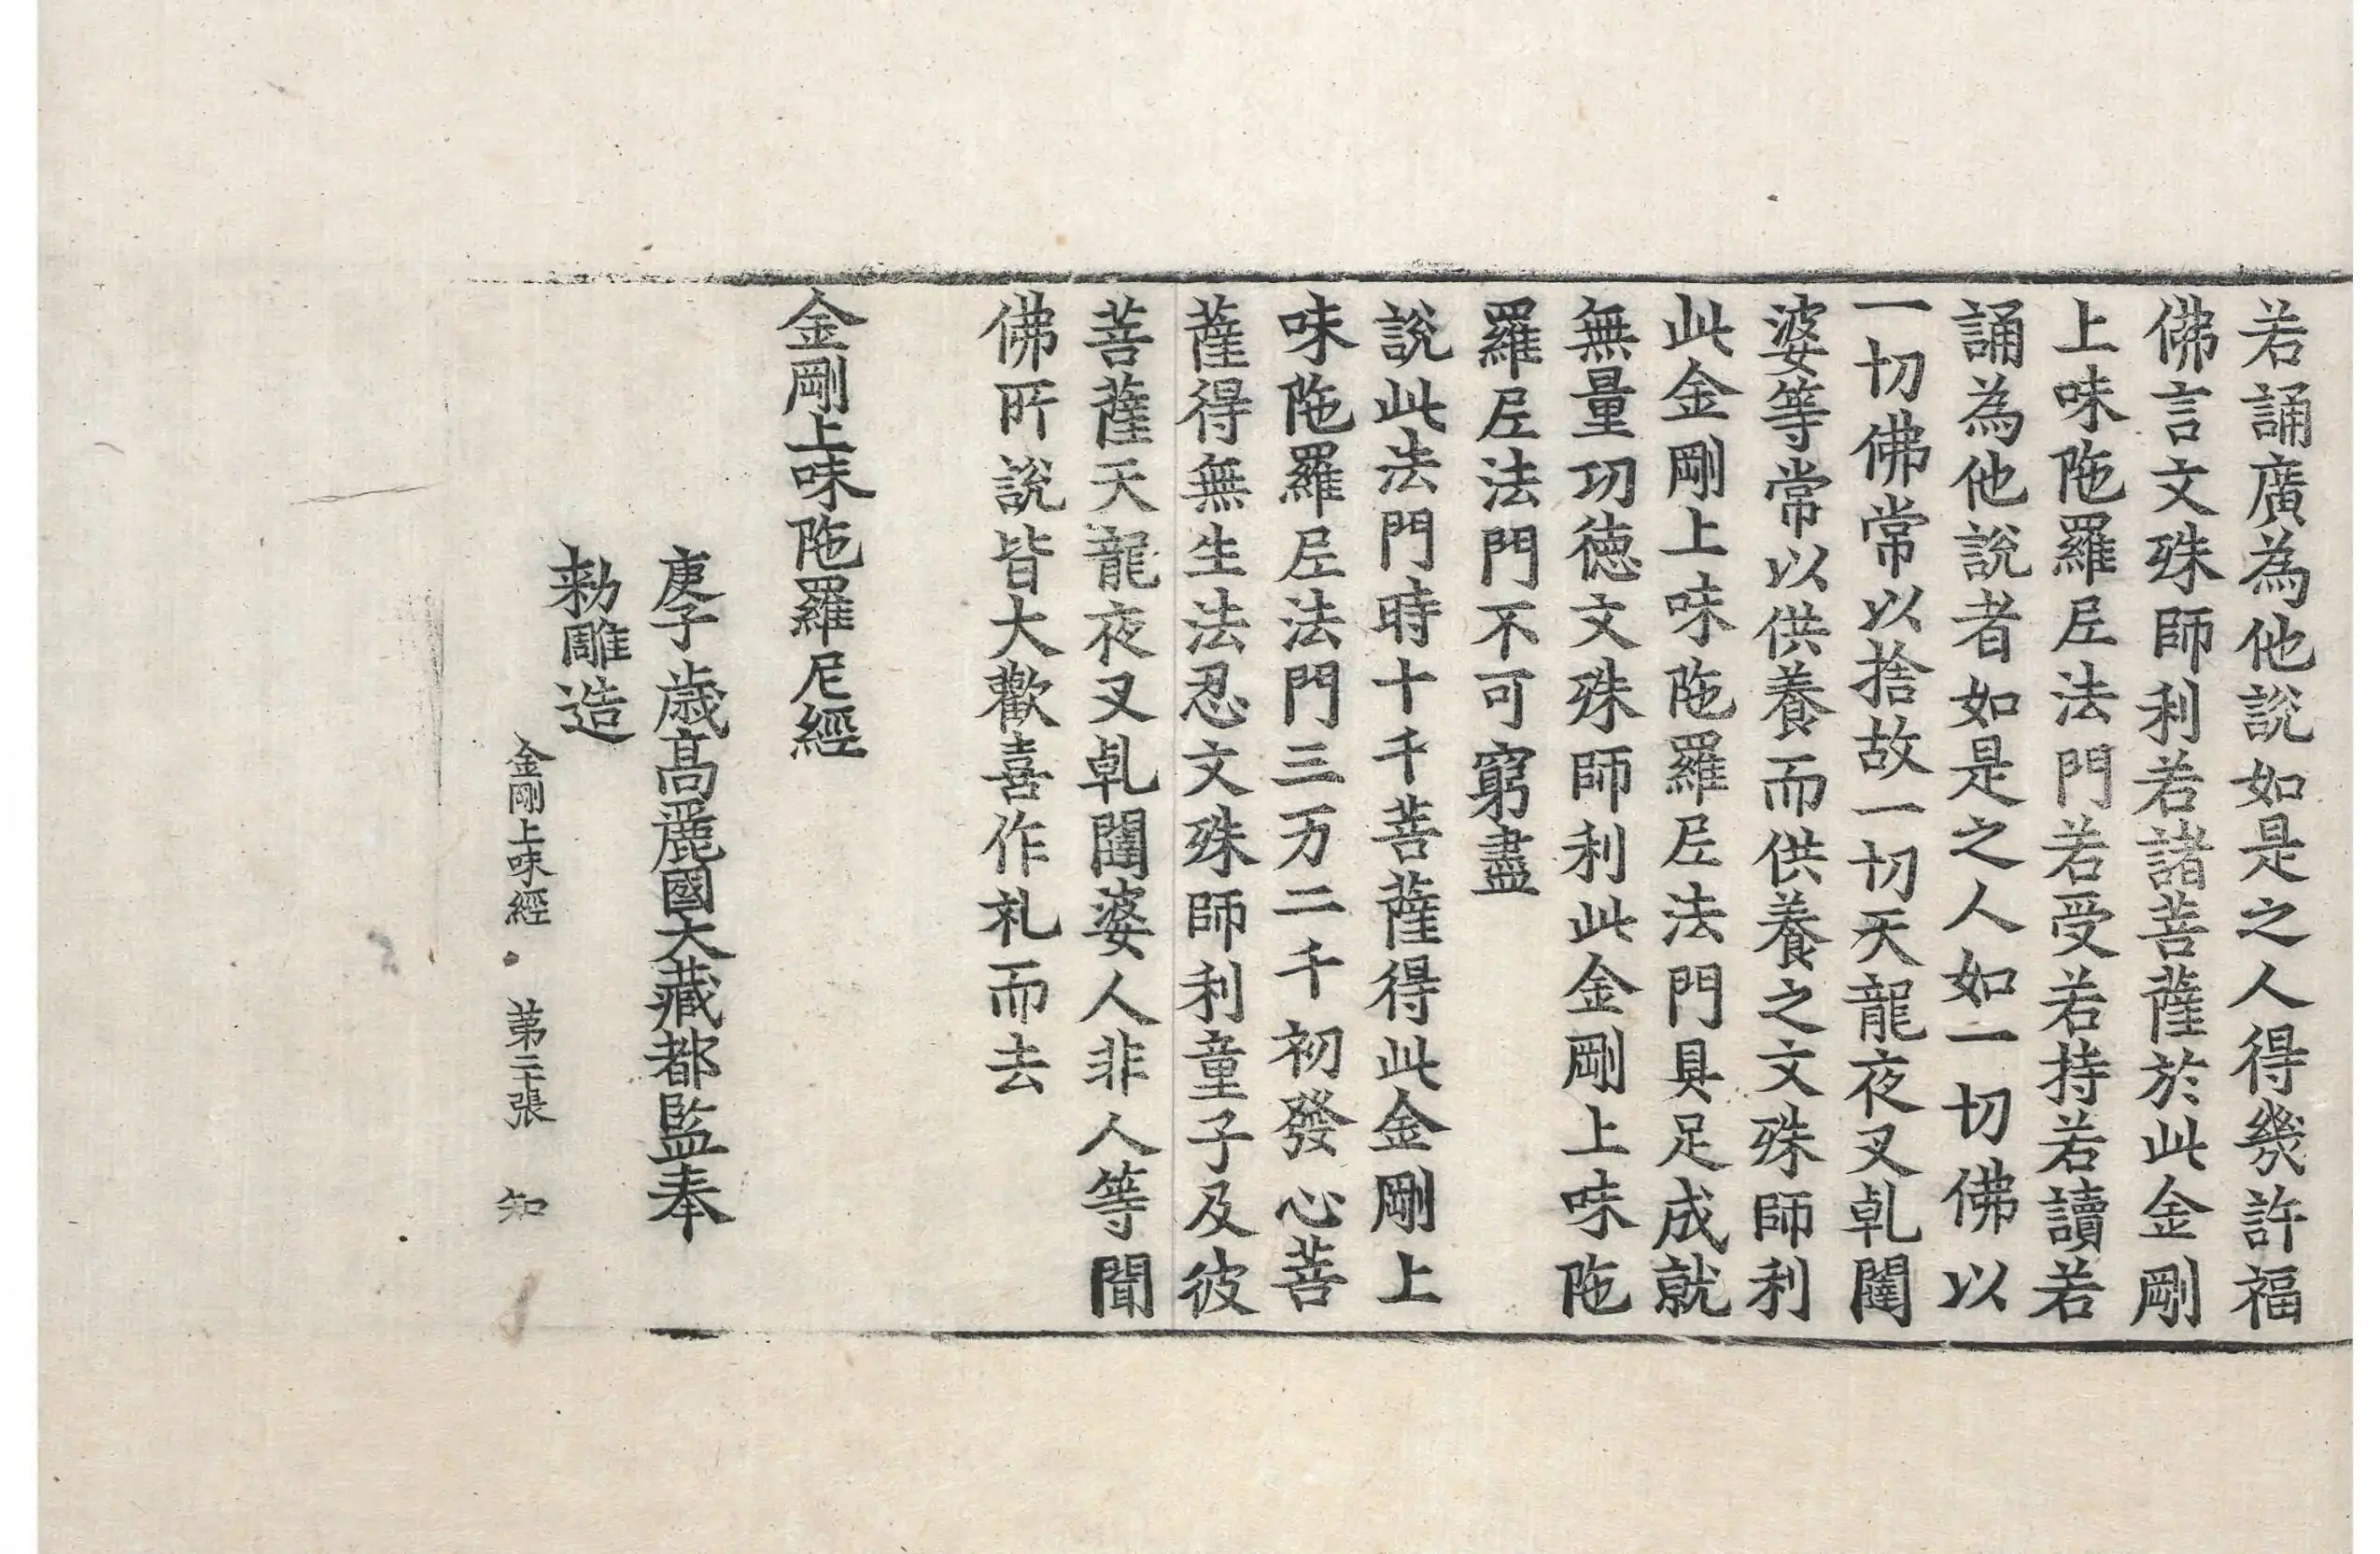 若誦廣為他說如是之人得幾許福
佛言文殊師利若諸菩薩於此金剛
上味陁羅𡰱法門若受若持若讀若
誦為他說者如是之人如一切佛以
一切佛常以捨故一切天龍夜叉乹闥
婆等常以供養而供養之文殊師利
此金剛上味陁羅𡰱法門具足成就
無量功徳文殊師利此金剛上味陁
羅𡰱法門不可窮盡
說此法門時十千菩薩得此金剛上
味陁羅𡰱法門三万二千初發心菩
薩得無生法忍文殊師利童子及彼
菩薩天龍夜叉乹闥婆人非人等聞
佛所說皆大歡喜作礼而去
金剛上味陁羅尼經
庚子歲高麗國大藏都監奉
勑雕造
金剛上味經 第二十張 知